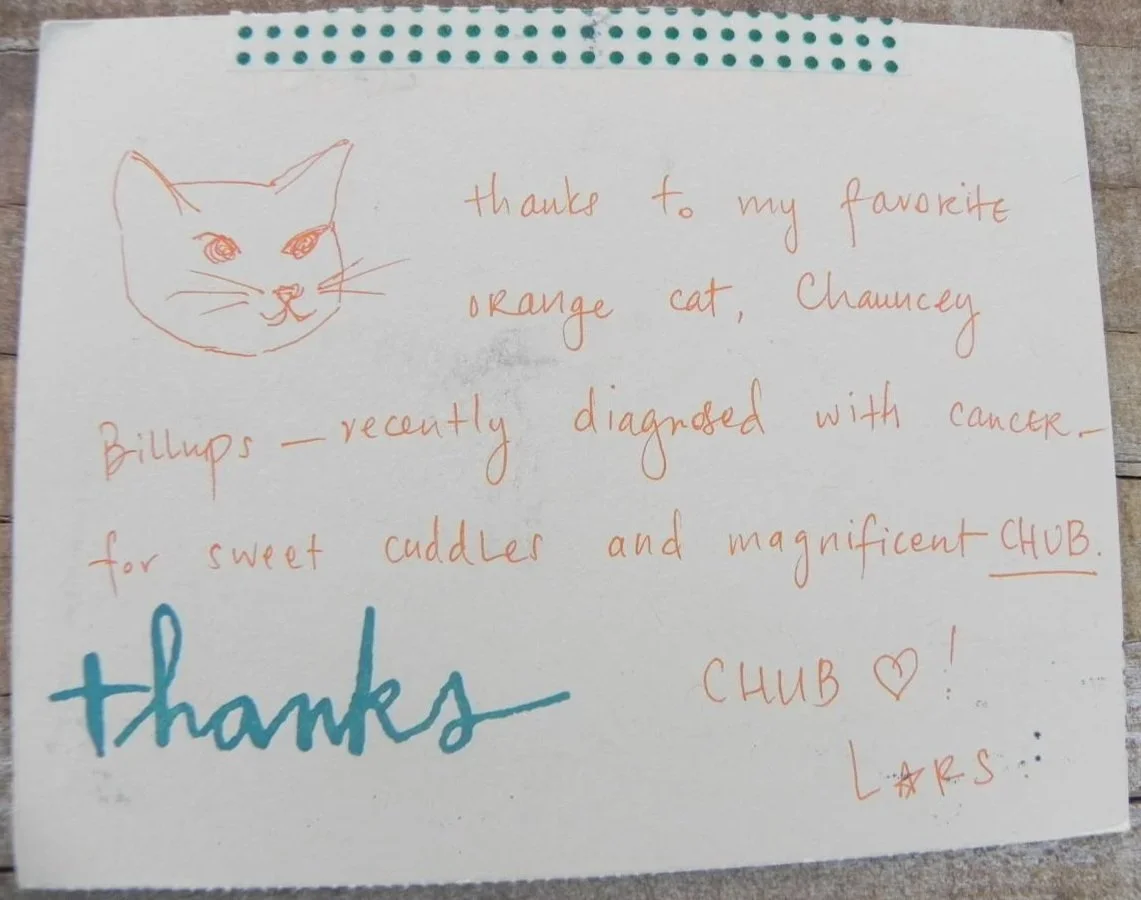 thanks to my favorite
orange cat, Chauncey
Billups — recently diagnosed with cancer —
for sweet cuddles and magnificent CHUB.
thanks
CHUB ♡!
LARS